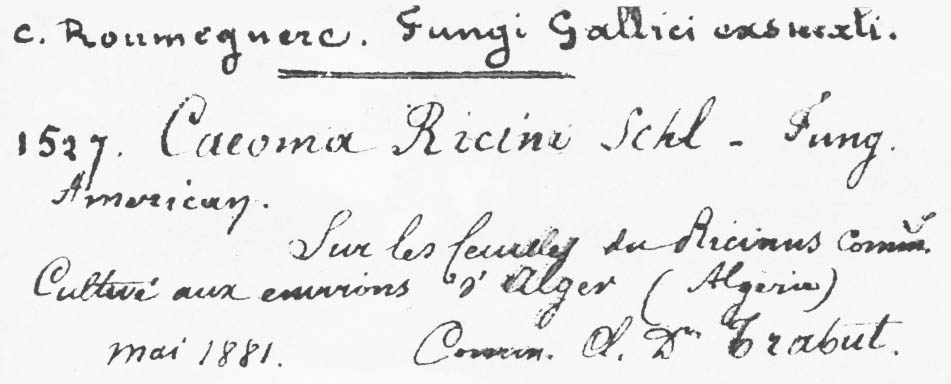 C. Roumeguere. Fungi Gallici exsiccati.
1527. Caeoma Ricini Schl - Fung.
American.
Sur les feuilles du Ricinus comm.
Cultivé aux environs d'Alger (Algérie)
mai 1881. Comm. Cl. Dr Trabut.